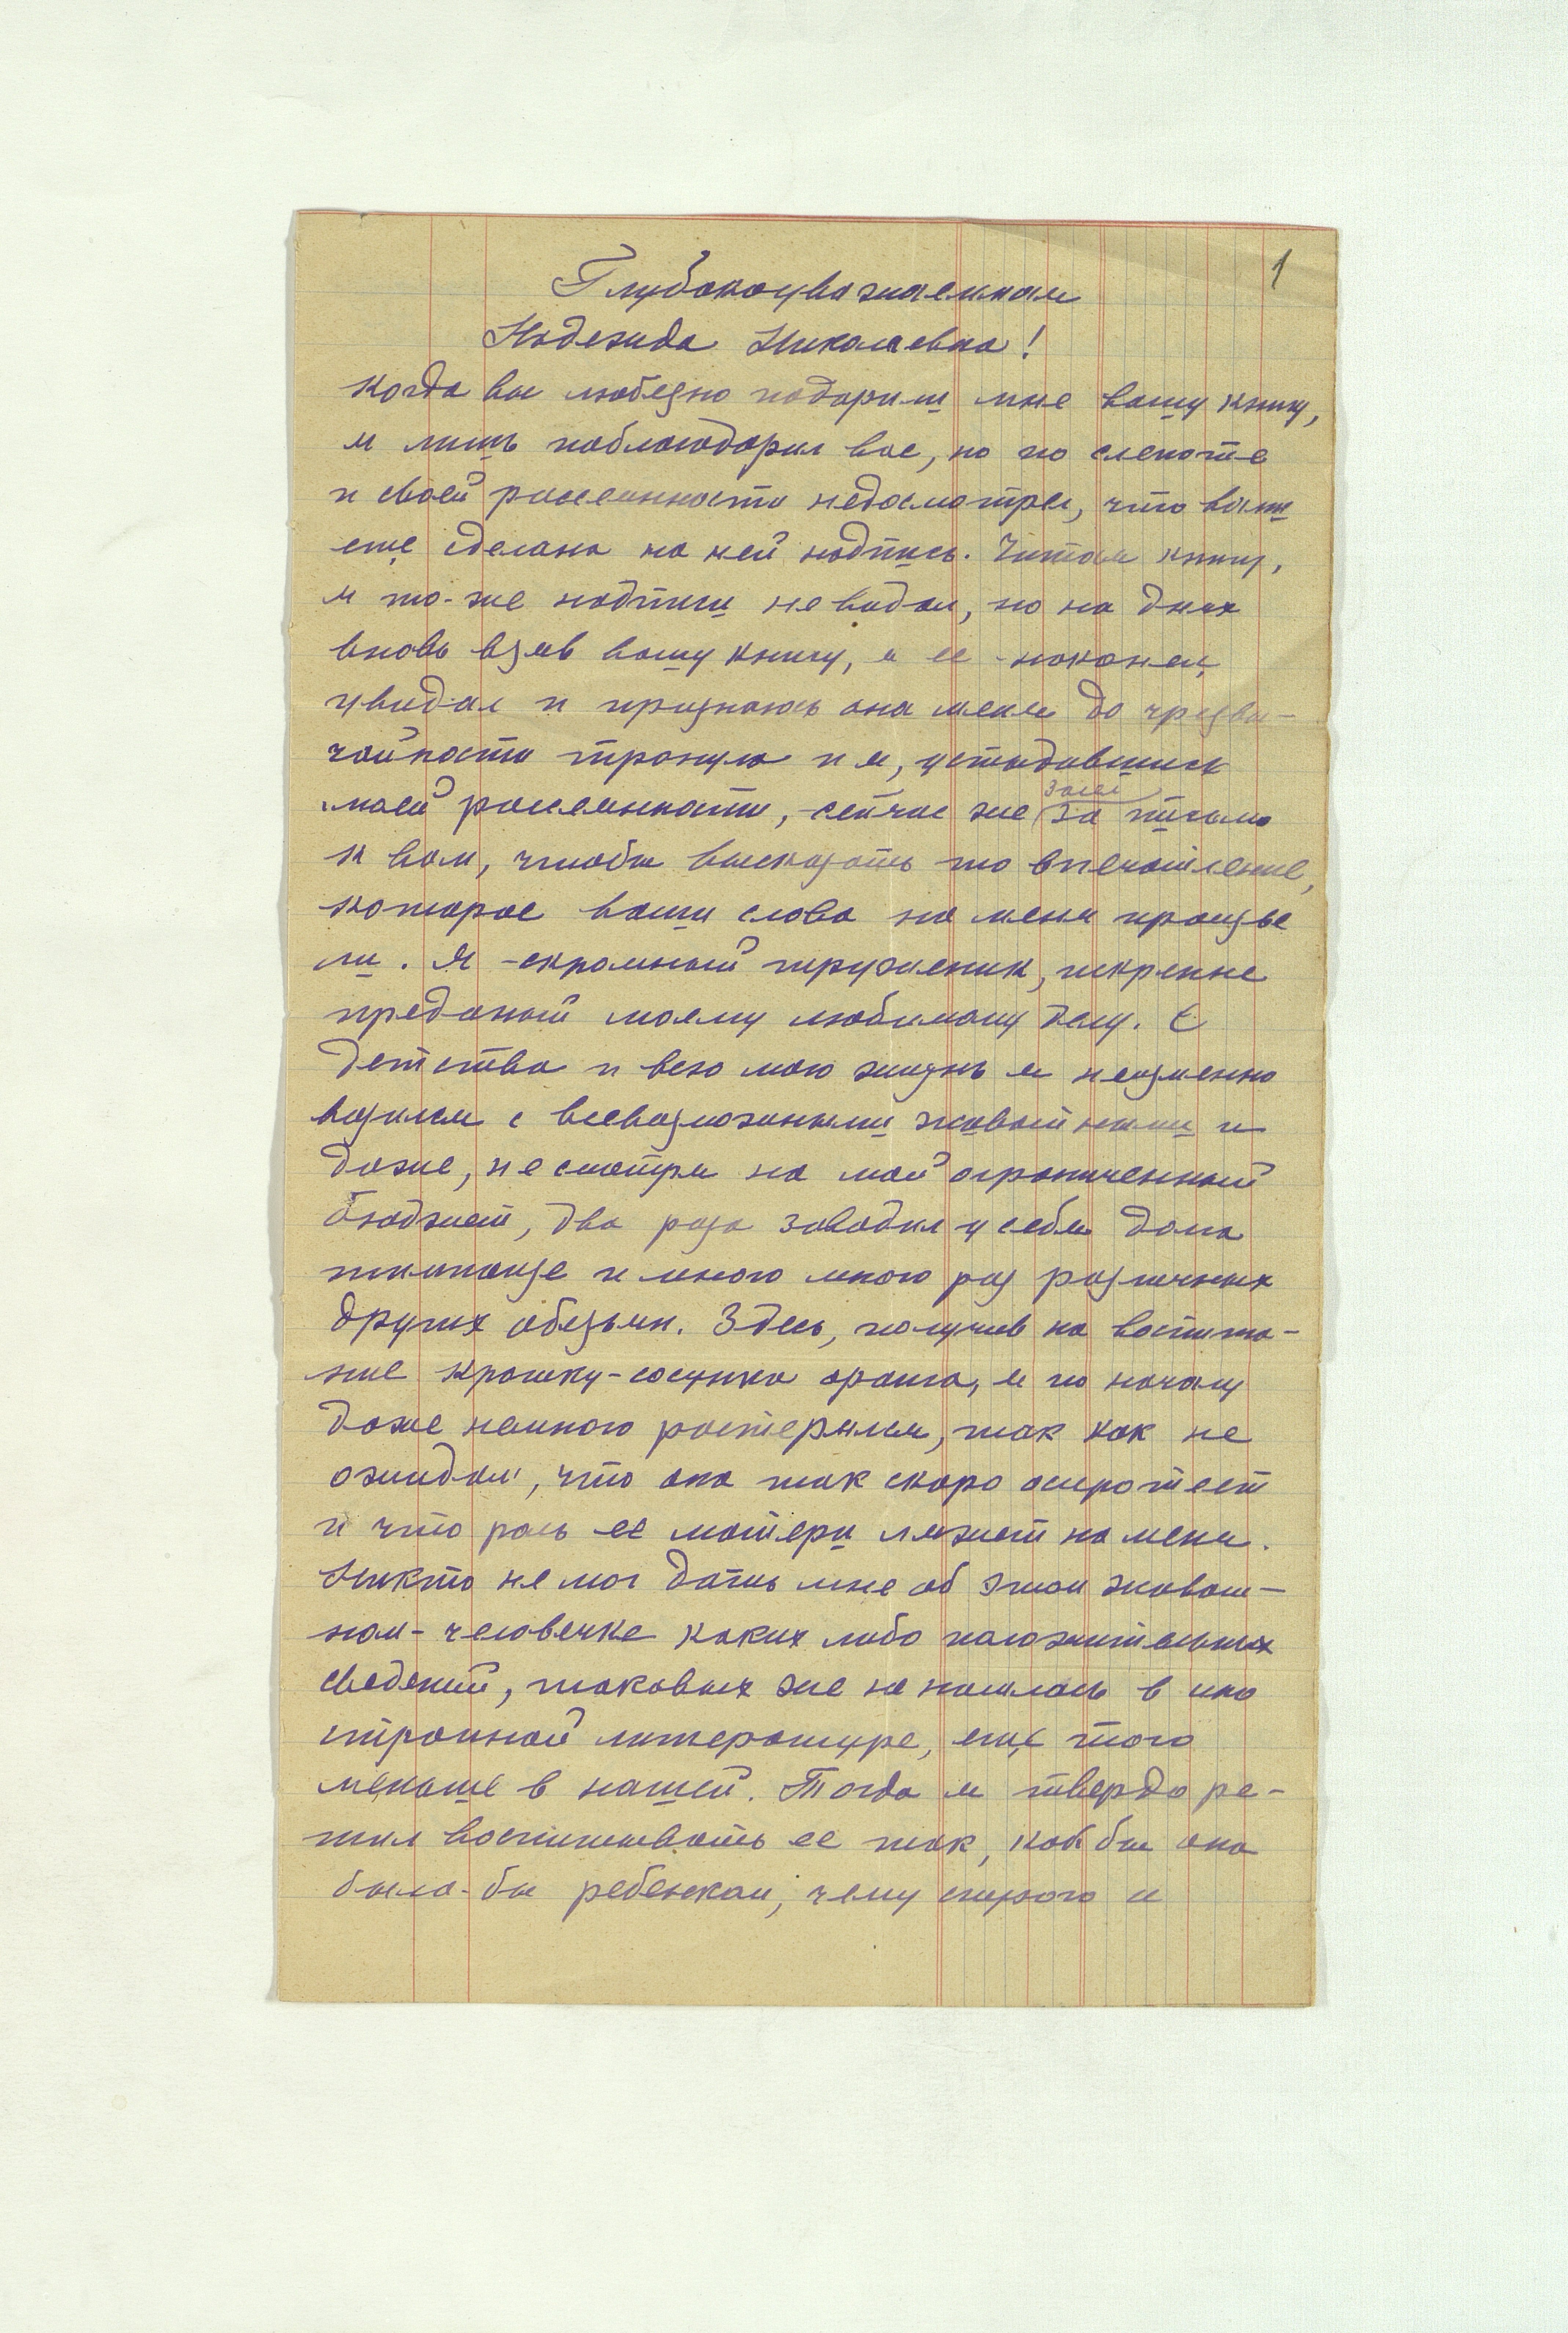 1
Глубокоуважаемая
Надежда Николаевна!
Когда вы любезно подарили мне вашу книгу,
я лишь поблагодарил вас, но по слепоте
и своей рассеянности недосмотрел, что вами
еще сделана на ней надпись. Читая книгу,
я то-же надписи не видал, но на днях
вновь взяв вашу книгу, я ее наконец
увидал и признаюсь она меня до чрезвы-
чайности тронула и я, устыдившись
моей рассеянности, сейчас же засел за письмо
к вам, чтобы высказать то впечатление,
которое ваши слова на меня произве
ли. Я - скромный труженик, искренне
преданый моему любимому делу. С
детства и всю мою жизнь я неизменно
возился с всевозможными животными и
даже, не смотря на мой ограниченный
бюджет, два раза заводил у себя дома
шимпанзе и много много раз различных
других обезьян. Здесь, получив на воспита-
ние крошку-сосунка оранга, я по началу
даже немного растерялся, так как не
ожидал, что она так скоро осиротеет
и что роль ее матери ляжет на меня.
Никто не мог дать мне об этом животн-
ном-человечке каких либо положительных
сведений, таковых же не нашлось в ино
странной литературе, еще того
меньше в нашей. Тогда я твердо ре-
шил воспитывать ее так, как бы она
была-бы ребенком, чему строго и